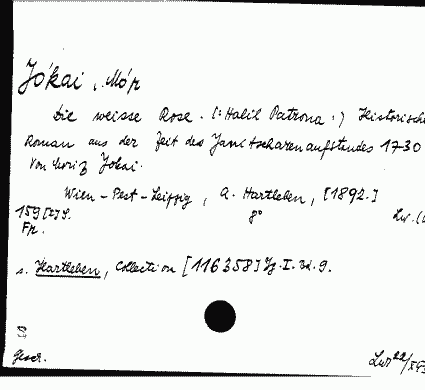 Jókai, Mór
Die weisse Rose. (: Halil Patrona :) Historische
Roman aus der Zeit des Janitscharenaufstandes 1730
von Moriz Jokai.
Wien - Pest - Leipzig, A. Hartleben, [1892.]
159 [2] S. 8° Lw.
Fr.
s. Hartleben, Collection [116358] Jg. I. Bd. 9.
Gesch.